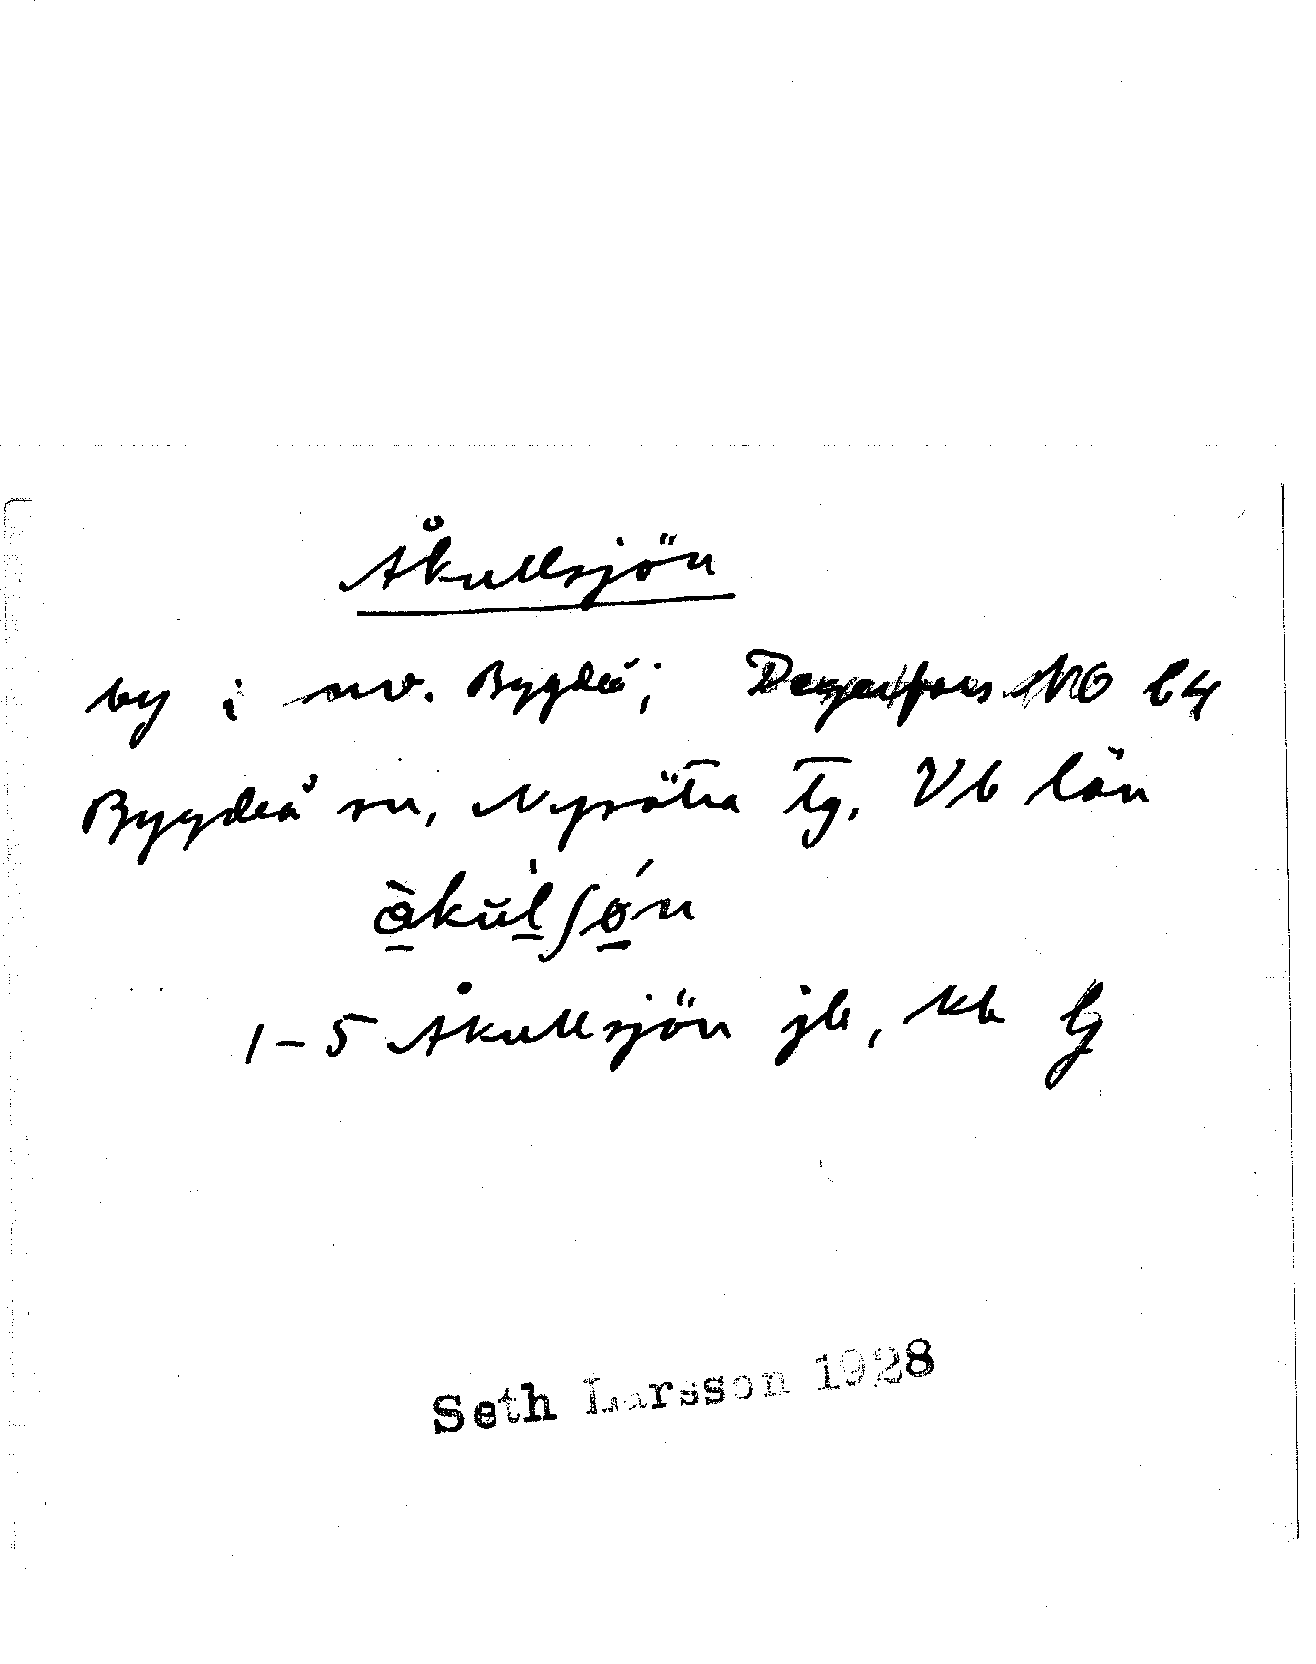 Åkullsjön
by i nv. Bygdeå; Degerfors NO b4
Bygdeå sn, Nysätra tg, Vb län
1-5 Åkullsjön jb, kb
Seth Larsson 1928